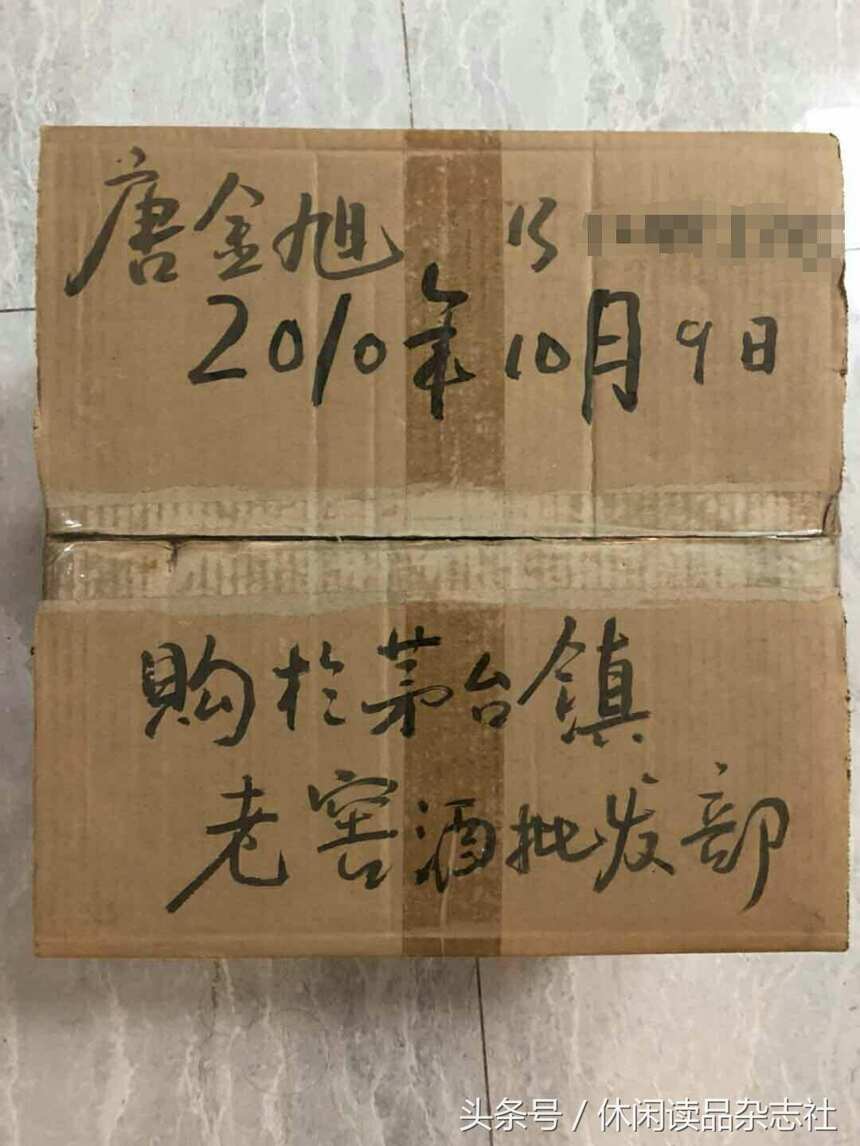 唐金旭 13
2010年10月9日
購於茅台鎮
老窖酒批发部
头条号 / 休闲读品杂志社